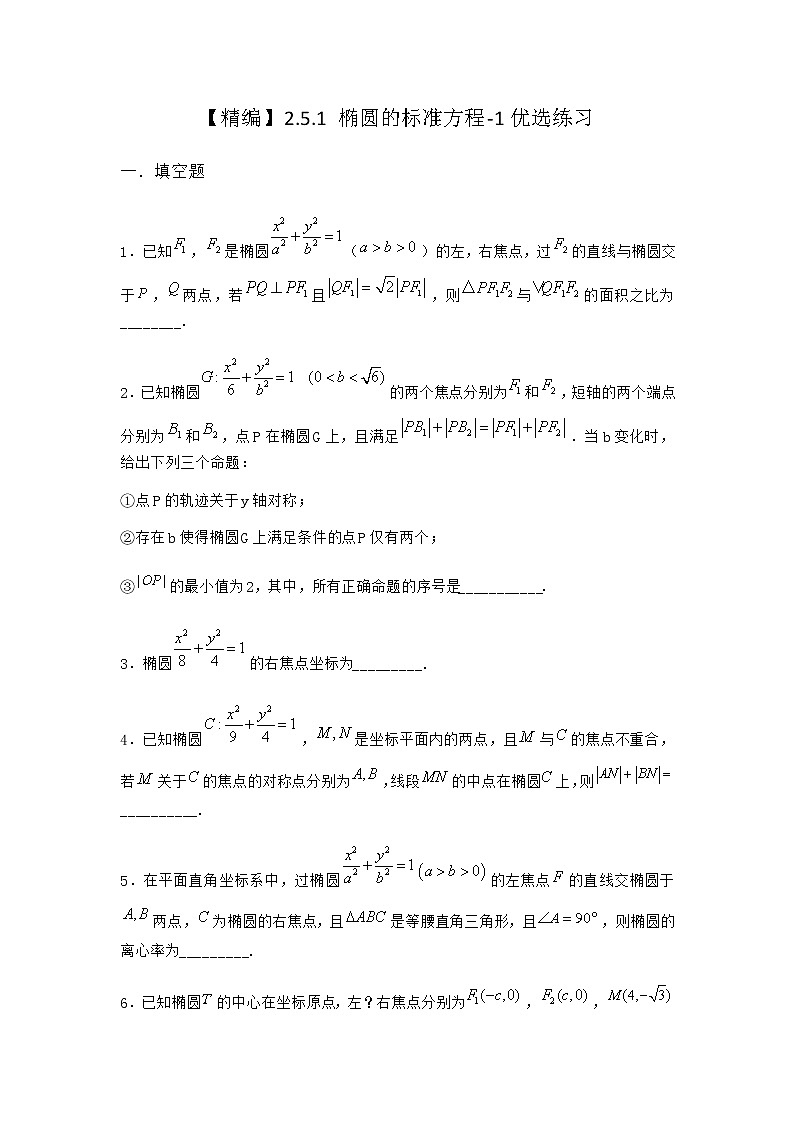 【精编】2.5.1 椭圆的标准方程-1优选练习
一．填空题
1．已知F₁，F₂是椭圆x²/a²+y²/b²=1（a>b>0）的左，右焦点，过F₂的直线与椭圆交
于P，Q两点，若PQ⊥PF₁且|QF₁|=√2|PF₁|，则△PF₁F₂与∨QF₁F₂的面积之比为
________．
2．已知椭圆G:x²/6+y²/b²=1 (0<b<√6)的两个焦点分别为F₁和F₂，短轴的两个端点
分别为B₁和B₂，点P在椭圆G上，且满足|PB₁|+|PB₂|=|PF₁|+|PF₂|．当b变化时，
给出下列三个命题：
①点P的轨迹关于y轴对称；
②存在b使得椭圆G上满足条件的点P仅有两个；
③|OP|的最小值为2，其中，所有正确命题的序号是___________．
3．椭圆x²/8+y²/4=1的右焦点坐标为_________．
4．已知椭圆C:x²/9+y²/4=1，M,N是坐标平面内的两点，且M与C的焦点不重合，
若M关于C的焦点的对称点分别为A,B，线段MN的中点在椭圆C上，则|AN|+|BN|=
__________．
5．在平面直角坐标系中，过椭圆x²/a²+y²/b²=1(a>b>0)的左焦点F的直线交椭圆于
A,B两点，C为椭圆的右焦点，且ΔABC是等腰直角三角形，且∠A=90°，则椭圆的
离心率为_________．
6．已知椭圆T的中心在坐标原点，左？右焦点分别为F₁(−c,0)，F₂(c,0)，M(4,−√3)